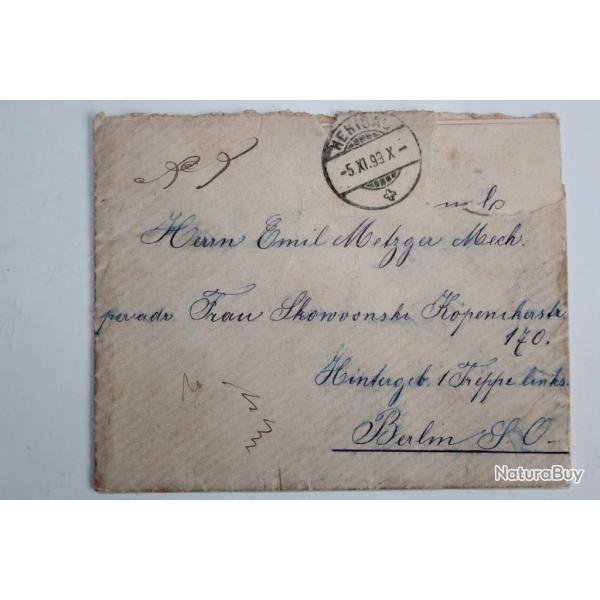 HERISAU
-5.XI.99.X-
Herrn Emil Metzger Mech.
per adr Frau Skowvonski Köpenikerstr.
170.
Hintergeb. 1 Treppe links.
Berlin S. O-
NaturaBuy